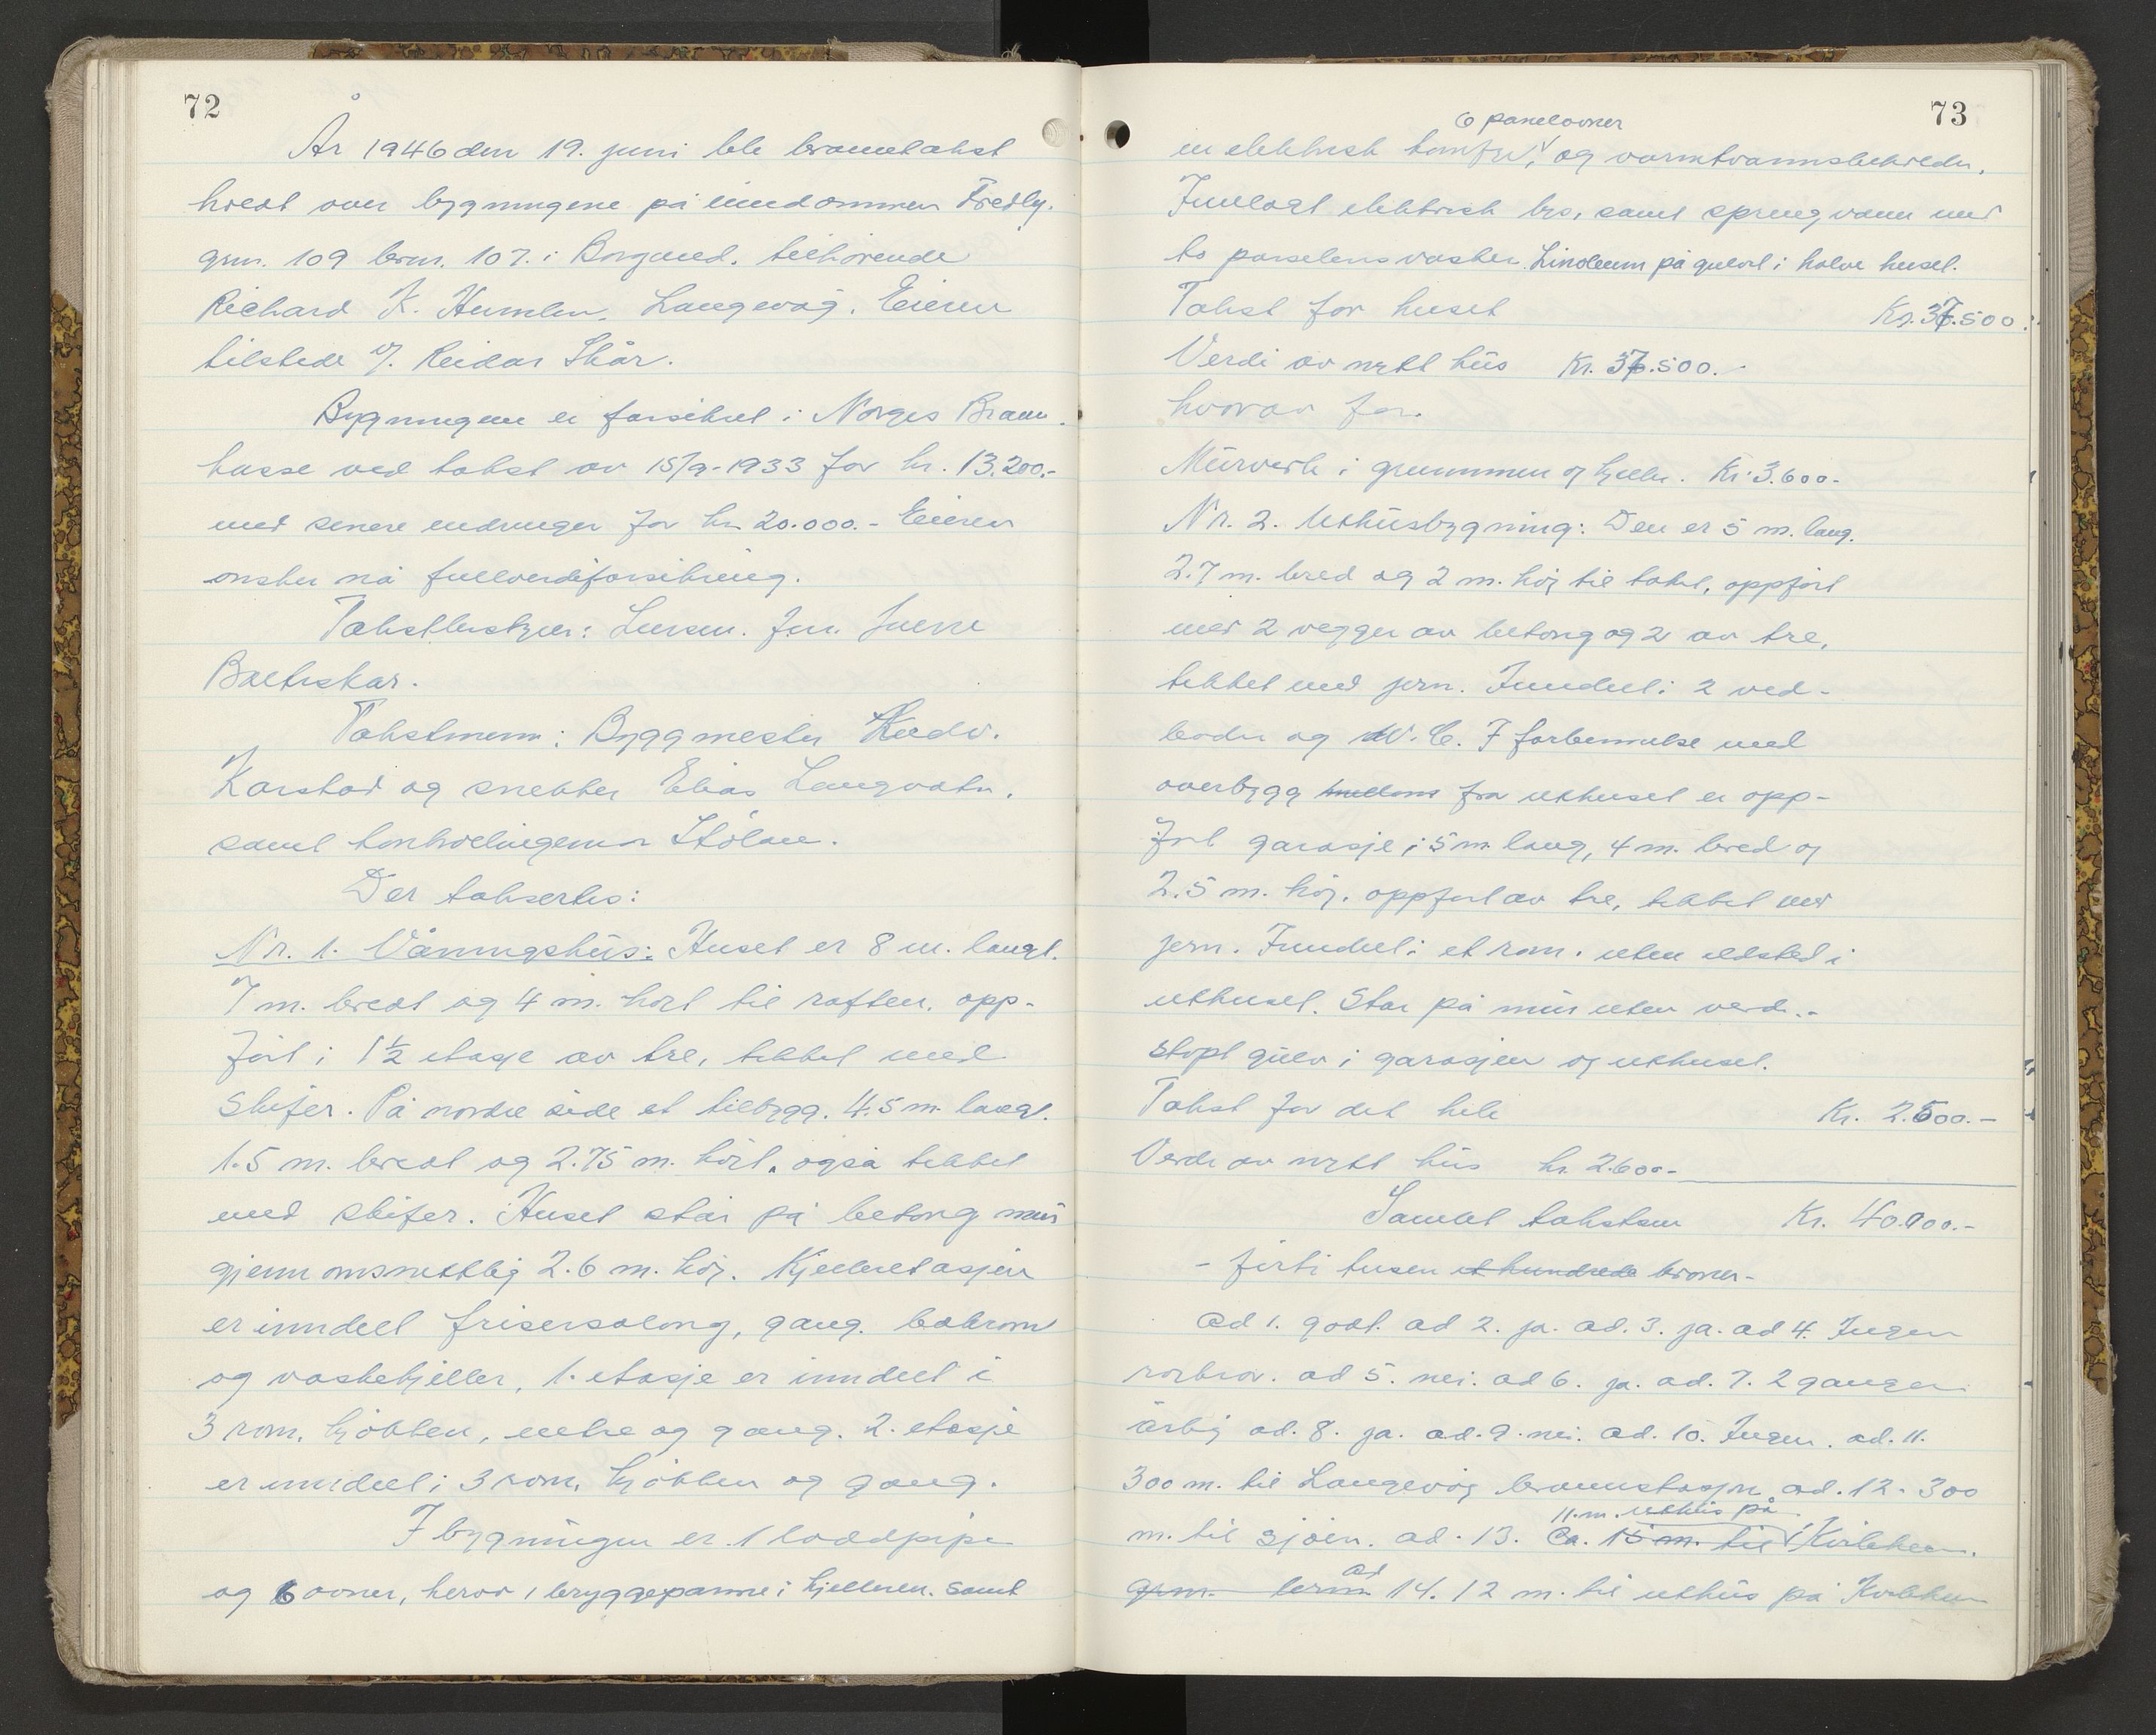 72
År 1946 den 19. juni ble branntakst
holdt over bygningene på eiendommen Fredly.
grn. 109 brn. 107. i Borgund. tilhørende
Richard K. Humlen, Langevåg. Eieren
tilstede v/. Reidar Skår.
Bygningene er forsikret i Norges Brann-
kasse ved takst av 15/9-1933 for kr. 13.200.-
med senere endringer for kr. 20.000.- Eieren
ønsker nå fullverdiforsikring.
Takstbestyrer: Lensm. Jon. Sverre
Balteskar.
Takstmenn: Byggmester Ludv.
Karstad og snekker Elias Langvatn.
samt kontrollingeniør Stölan.
Der taksertes:
Nr. 1. Våningshus: Huset er 8 m. langt.
7 m. bredt og 4 m. høit til raften. opp-
ført i 1½ etasje av tre, tekket med
skifer. På nordre side et tilbygg. 4.5 m. langt.
1.5 m. bredt og 2.75 m. høit. også tekket
med skifer. Huset står på betong mur
gjennomsnittlig 2.6 m. høy. Kjelleretasjen
er inndelt frisersalong, gang. bakrom
og vaskekjeller, 1. etasje er inndelt i
3 rom. kjøkken, entre og gang. 2. etasje
er inndelt i 3 rom, kjøkken og gang.
I bygningen er 1 loddpipe
og 6 ovner, herav 1 bryggepanne i kjelleren. samt
73
6 panelovner
en elektrisk komfur, og varmtvannsbeholder.
Innlagt elektrisk lys, samt springvann med
to porselensvasker. Linoleum på gulvet i halve huset.
Takst for huset Kr. 37.500.-
Verdi av nytt hus Kr. 37.500.-
hvorav for.
Murverk i grunnmur og kjeller. Kr. 3.600.-
Nr. 2. Uthusbygning: Den er 5 m. lang.
2.7 m. bred og 2 m. høy til taket, oppført
med 2 vegger av betong og 2 av tre,
tekket med jern. Inndelt: 2 ved-
boder og W.C. I forbinnelse med
overbygg mellom fra uthuset er opp-
ført garasje; 5 m. lang, 4 m. bred og
2.5 m. høy. oppført av tre, tekket med
jern. Inndelt: et rom. uten ildsted i
uthuset. Står på mur uten verdi.-
støpt gulv i garasjen og uthuset.
Takst for det hele Kr. 2.500.-
Verdi av nytt hus kr. 2.600.-
Samlet takstsum Kr. 40.000.-
- førti tusen et hundrede kroner-
ad 1. godt. ad 2. ja. ad. 3. ja. ad 4. Ingen
rorbrov. ad 5. nei. ad 6. ja. ad. 7. 2 ganger
årlig ad. 8. ja. ad. 9. nei. ad. 10. Ingen. ad. 11.
300 m. til Langevåg brannstasjon ad. 12. 300
11. m. uthus på
m. til sjøen. ad. 13. Ca. 15 m. til Kirkheim.
ad
grn. brn 14. 12 m. til uthus på